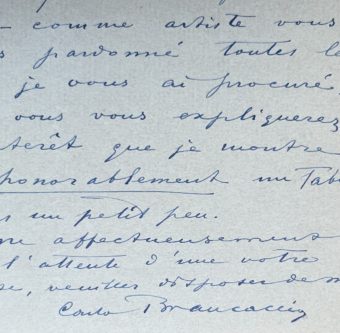 - comme artiste vous
pardonné toutes le
je vous ai procuré,
vous vous expliquerez
terêt que je montre
honorablement un Tab
un petit peu.
ne affectueusement
l'attente d'une votre
se, veuillez disposer de m
Carlo Brancaccio